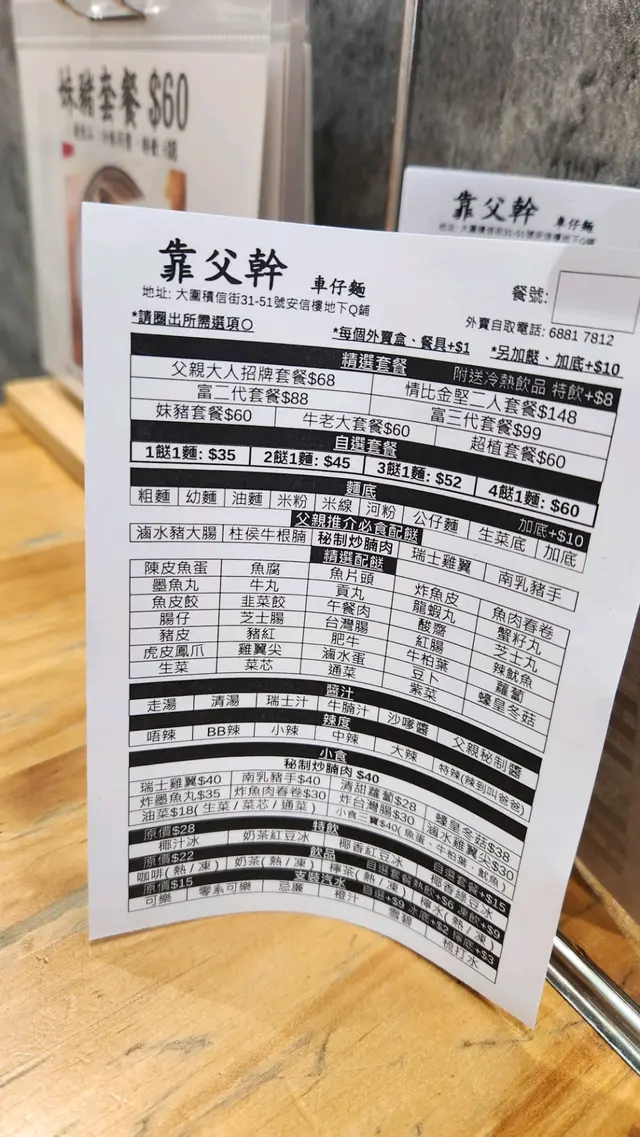 妹豬套餐 $60
靠父幹 車仔麵
靠父幹 車仔麵
地址: 大圍積信街31-51號安信樓地下Q鋪
餐號:
外賣自取電話: 6881 7812
*請圈出所需選項O
*每個外賣盒、餐具+$1
*另加餸、加底+$10
精選套餐 附送冷熱飲品 特飲+$8
父親大人招牌套餐$68 情比金堅二人套餐$148
富二代套餐$88 富三代套餐$99
妹豬套餐$60 牛老大套餐$60 超植套餐$60
自選套餐
1餸1麵: $35 2餸1麵: $45 3餸1麵: $52 4餸1麵: $60
麵底 加底+$10
粗麵 幼麵 油麵 米粉 米線 河粉 公仔麵 生菜底 加底
父親推介必食配餸
滷水豬大腸 柱侯牛根腩 秘制炒腩肉 瑞士雞翼 南乳豬手
精選配餸
陳皮魚蛋 魚腐 魚片頭 炸魚皮 魚肉春卷
墨魚丸 牛丸 貢丸 龍蝦丸 蟹籽丸
魚皮餃 韭菜餃 午餐肉 酸齋 芝士丸
腸仔 芝士腸 台灣腸 紅腸 辣魷魚
豬皮 豬紅 肥牛 牛柏葉 蘿蔔
虎皮鳳爪 雞翼尖 滷水蛋 豆卜 蠔皇冬菇
生菜 菜芯 通菜 紫菜
醬汁
走湯 清湯 瑞士汁 牛腩汁 沙嗲醬 父親秘制醬
辣度
唔辣 BB辣 小辣 中辣 大辣 特辣(辣到叫爸爸)
小食
秘制炒腩肉 $40
瑞士雞翼$40 南乳豬手$40 清甜蘿蔔$28 蠔皇冬菇$38
炸墨魚丸$35 炸魚肉春卷$30 炸台灣腸$30 滷水雞翼尖$30
油菜$18( 生菜 / 菜芯 / 通菜 ) 小食三寶$40( 魚蛋、牛柏葉、魷魚 )
原價$28 特飲 自選套餐+$15
椰汁冰 奶茶紅豆冰 椰香紅豆冰 椰香綠豆冰
原價$22 飲品 自選套餐熱飲+$6 凍飲+$9
咖啡( 熱 / 凍 ) 奶茶( 熱 / 凍 ) 檸茶( 熱 / 凍 ) 檸水( 熱 / 凍 )
原價$15 支裝汽水 自選+$9 冰底+$2 檸底+$3
可樂 零系可樂 忌廉 橙汁 雪碧 梳打水